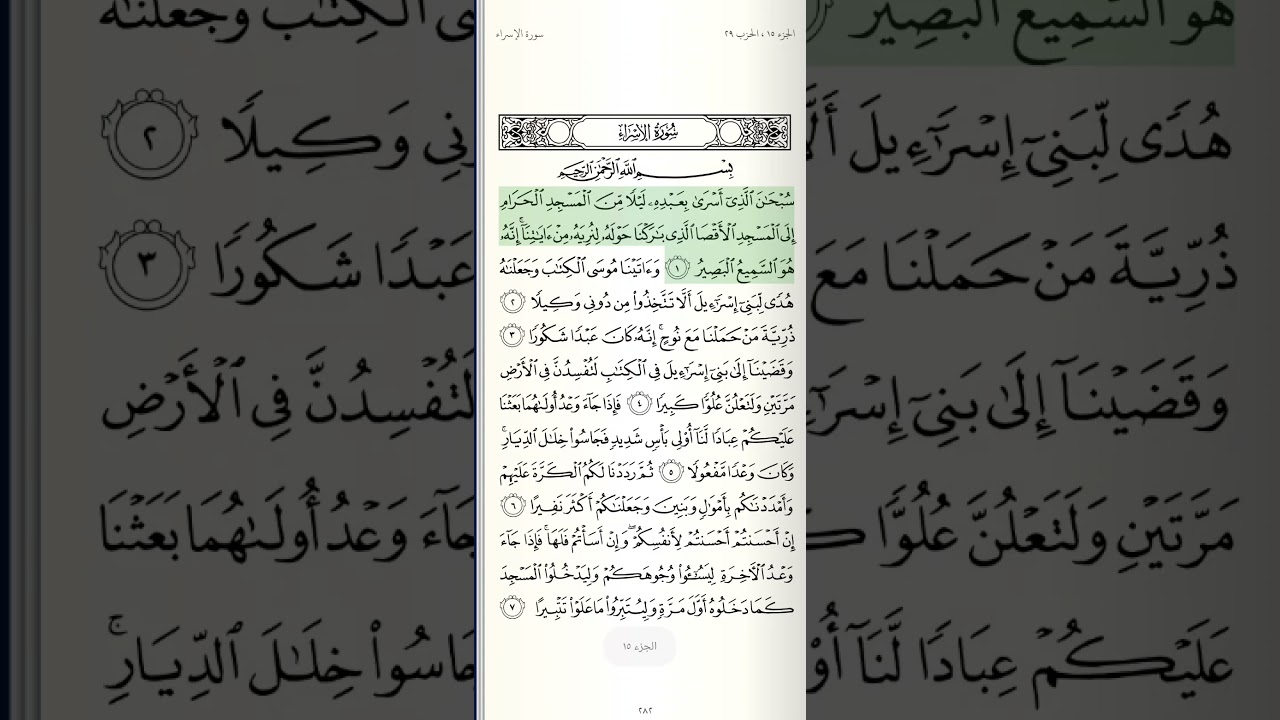 سورة الإسراء
الجزء ١٥ ، الحزب ٢٩
سُورَةُ الإِسْرَاءِ
بِسْمِ ٱللَّهِ ٱلرَّحْمَٰنِ ٱلرَّحِيمِ
سُبْحَٰنَ ٱلَّذِىٓ أَسْرَىٰ بِعَبْدِهِۦ لَيْلًا مِّنَ ٱلْمَسْجِدِ ٱلْحَرَامِ
إِلَى ٱلْمَسْجِدِ ٱلْأَقْصَا ٱلَّذِى بَٰرَكْنَا حَوْلَهُۥ لِنُرِيَهُۥ مِنْ ءَايَٰتِنَآ ۚ إِنَّهُۥ
هُوَ ٱلسَّمِيعُ ٱلْبَصِيرُ ١ وَءَاتَيْنَا مُوسَى ٱلْكِتَٰبَ وَجَعَلْنَٰهُ
هُدًى لِّبَنِىٓ إِسْرَٰٓءِيلَ أَلَّا تَتَّخِذُوا۟ مِن دُونِى وَكِيلًا ٢
ذُرِّيَّةَ مَنْ حَمَلْنَا مَعَ نُوحٍ ۚ إِنَّهُۥ كَانَ عَبْدًا شَكُورًا ٣
وَقَضَيْنَآ إِلَىٰ بَنِىٓ إِسْرَٰٓءِيلَ فِى ٱلْكِتَٰبِ لَتُفْسِدُنَّ فِى ٱلْأَرْضِ
مَرَّتَيْنِ وَلَتَعْلُنَّ عُلُوًّا كَبِيرًا ٤ فَإِذَا جَآءَ وَعْدُ أُولَىٰهُمَا بَعَثْنَا
عَلَيْكُمْ عِبَادًا لَّنَآ أُو۟لِى بَأْسٍ شَدِيدٍ فَجَاسُوا۟ خِلَٰلَ ٱلدِّيَارِ ۚ
وَكَانَ وَعْدًا مَّفْعُولًا ٥ ثُمَّ رَدَدْنَا لَكُمُ ٱلْكَرَّةَ عَلَيْهِمْ
وَأَمْدَدْنَٰكُم بِأَمْوَٰلٍ وَبَنِينَ وَجَعَلْنَٰكُمْ أَكْثَرَ نَفِيرًا ٦
إِنْ أَحْسَنتُمْ أَحْسَنتُمْ لِأَنفُسِكُمْ ۖ وَإِنْ أَسَأْتُمْ فَلَهَا ۚ فَإِذَا جَآءَ
وَعْدُ ٱلْءَاخِرَةِ لِيَسُۥٓـُٔوا۟ وُجُوهَكُمْ وَلِيَدْخُلُوا۟ ٱلْمَسْجِدَ
كَمَا دَخَلُوهُ أَوَّلَ مَرَّةٍ وَلِيُتَبِّرُوا۟ مَا عَلَوْا۟ تَتْبِيرًا ٧
الجزء ١٥
٢٨٢